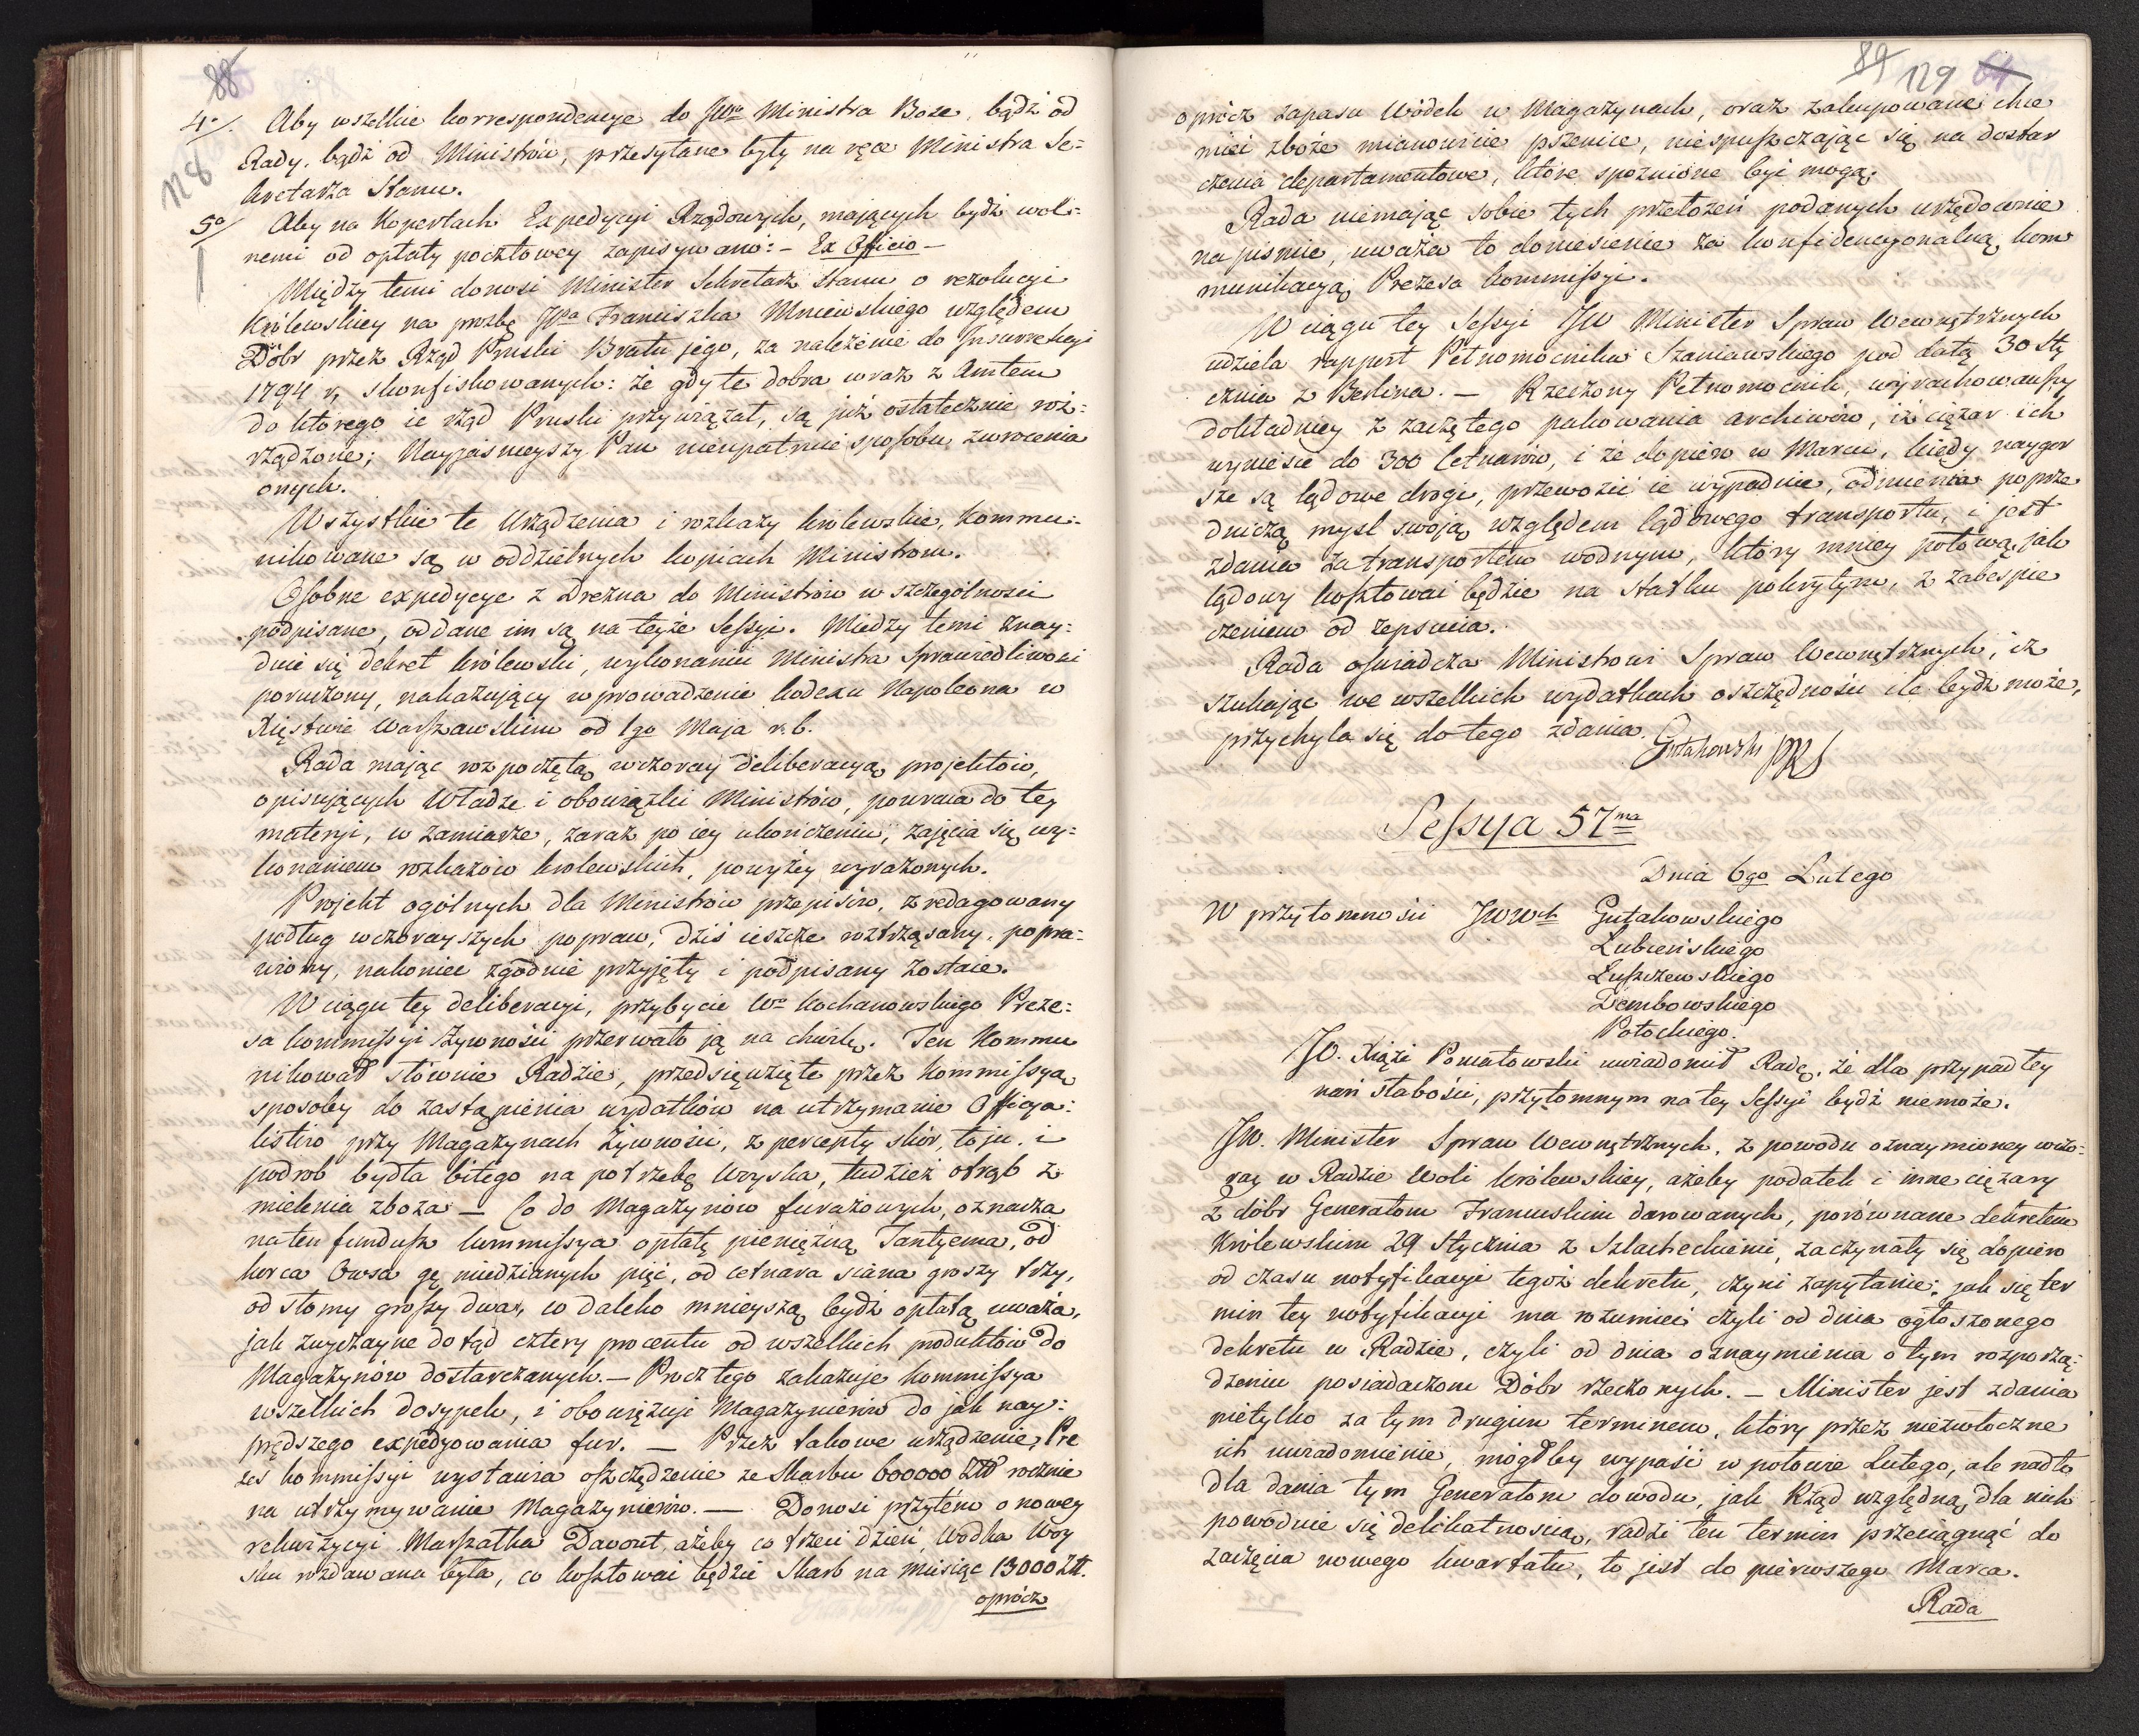 88
128
4o/. Aby wszelkie korrespondencye do JWo Ministra Boze, bądź od
Rady, bądź od Ministrów, przesyłane były na ręce Ministra Se=
kretarza Stanu.
5o/ Aby na Kopertach Expedycyi Rządowych, mających bydź wol=
nemi od opłaty pocztowey zapisywano: – Ex Officio –
Między temi donosi Minister Sekretarz Stanu o rezolucyi
Królewskiey na prozbę JPa Franciszka Mniewskiego względem
Dóbr przez Rząd Pruski Bratu jego, za należenie do Insurrekcyi
1794 r, skonfiskowanych: że gdy te dobra wraz z Amtem
do którego ie rząd Pruski przywiązał, są już ostatecznie roz=
rządzone; Nayjaśnieyszy Pan nieupatruie sposobu zwrócenia
onych.
Wszystkie te Urządzenia i rozkazy królewskie, kommu=
nikowane są w oddzielnych kopiach Ministrom.
Osobne expedycye z Drezna do Ministrów w szczególności
podpisane, oddane im są na teyże Sessyi. Miedzy temi znay=
duie się dekret królewski, wykonaniu Ministra Sprawiedliwości
poruczony, nakazujący wprowadzenie kodexu Napoleona w
Xięstwie Warszawskim od 1go Maja r. b.
Rada mając rozpoczętą wczoray deliberacyą projektów,
opisujących Władze i obowiązki Ministrów, powraca do tey
materyi, w zamiarze, zaraz po iey ukończeniu, zajęcia się wy=
konaniem rozkazów krolewskich, powyżey wyrażonych.
Projekt ogólnych dla Ministrów przepisów, zredagowany
podług wczorayszych popraw, dziś ieszcze roztrząsany, popra=
wiony, nakoniec zgodnie przyjęty i podpisany zostaie.
W ciągu tey deliberacyi, przybycie Wo Kochanowskiego Preze=
sa kommissyi Żywności przerwało ją na chwilę. Ten Kommu
nikował słownie Radzie, przedsięwzięte przez Kommissyą
sposoby do zastąpienia wydatków na utrzymanie Officya=
listów przy Magazynach Żywności, z percepty skór, łoju, i
podrob bydła bitego na potrzebę Woyska, tudzież otrąb z
mielenia zboża – Co do Magazynów furażowych, oznacza
na ten fundusz kommissya opłatę pieniężną Tantyema, od
korca Owsa gę miedzianych pięć, od cetnara siana groszy trzy,
od słomy groszy dwa, co daleko mnieyszą bydź opłatą uważa,
jak zwyczayne dotąd cztery procentu od wszelkich produktów do
Magazynów dostarczanych. – Procz tego zakazuje kommissya
wszelkich dosypek, i obowiązuje Magazynierów do jak nay=
prędszego expedyowania fur. – Przez takowe urządzenie, Pre
zes kommissyi wystawia oszczędzenie ze Skarbu 600000 Złł rocznie
na utrzymywanie Magazynierów. – Donosi przytém o nowey
rekwizycyi Marszałka Davout, ażeby co trzeci dzień, Wodka Woy
sku rozdawana była, co kosztowai będzie Skarb na miesiąc 13000 Złł.
oprócz
89 129 64
oprócz zapasu Wódek w Magazynach, oraz zakupowanie chce
mieć zboże mianowicie pszenice, niespuszczając się na dostar
czenia departamentowe, które spoznione byi mogą;
Rada niemając sobie tych przełożeń podanych urzędownie
na pismie, uważa to doniesienie za konfidencyonalną kom
munikacyą Prezesa kommissyi.
W ciągu tey Sessyi JW Minister Spraw Wewnętrznych
udziela rapport Pełnomocnika Szaniawskiego pod datą 30 Sty
cznia z Berlina. – Rzeczony Pełnomocnik, wyrachowawszy
dokładniey z zaczętego pakowania archiwów, iż ciężar ich
wyniesie do 300 Cetnarów, i że dopiero w Marcu, kiedy naygor
sze są lądowe drogi, przewozić ie wypadnie, odmienia poprze
dniczą mysl swoją względem lądowego transportu, i jest
zdania za transportem wodnym, który mniey połową jak
lądowy kosztowai będzie na statku pokrytym, z zabespie
czeniem od zepsucia.
Rada oswiadcza Ministrowi Spraw Wewnętrznych, iż
szukając we wszelkich wydatkach oszczędności ile bydź może,
przychyla się do tego zdania.
Gutakowski PPS
Sessya 57ma
Dnia 6go Lutego
W przytomności JWWch Gutakowskiego
Łubieńskiego
Łuszczewskiego
Dembowskiego
Potockiego.
JO. Xiąże Poniatowski uwiadomił Radę, że dla przypadłey
nań słabości, przytomnym na tey Sessyi bydź niemoże.
JW. Minister Spraw Wewnętrznych, z powodu oznaymioney wczo=
ray w Radzie Woli królewskiey, ażeby podatek i inne ciężary
z dóbr Generałom Francuskim darowanych, porównane dekretem
Królewskim 29 Stycznia z Szlacheckiemi, zaczynały się dopiero
od czasu notyfikacyi tegoż dekretu, czyni zapytanie: jak się ter
min tey notyfikacyi ma rozumieć czyli od dnia ogłoszonego
dekretu w Radzie, czyli od dnia oznaymienia o tym rozporzą=
dzeniu posiadaczom Dóbr rzeczonych. – Minister jest zdania
nietylko za tym drugim terminem, który przez niezwłoczne
ich uwiadomienie, mógłby wypaść w połowie Lutego, ale nadto
dla dania tym Generałom dowodu, jak Rząd względną dla nich
powoduie się delikatnością, radzi ten termin przeciągnąć do
zaczęcia nowego kwartału, to jest do pierwszego Marca.
Rada